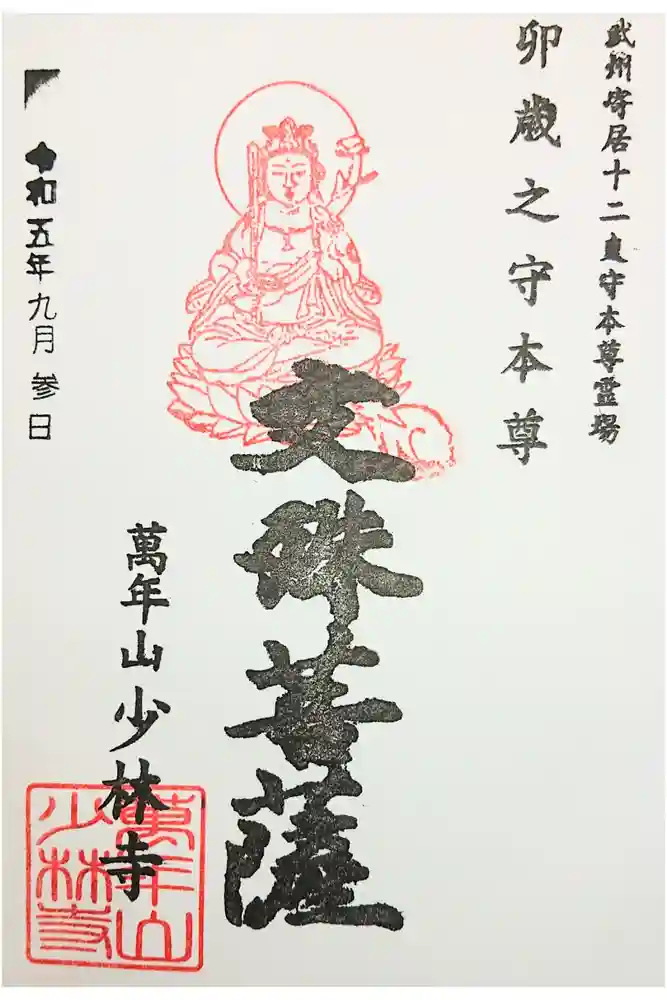 武州寄居十二支守本尊霊場
卯歳之守本尊
文殊菩薩
萬年山少林寺
萬年山
少林寺
令和五年九月参日